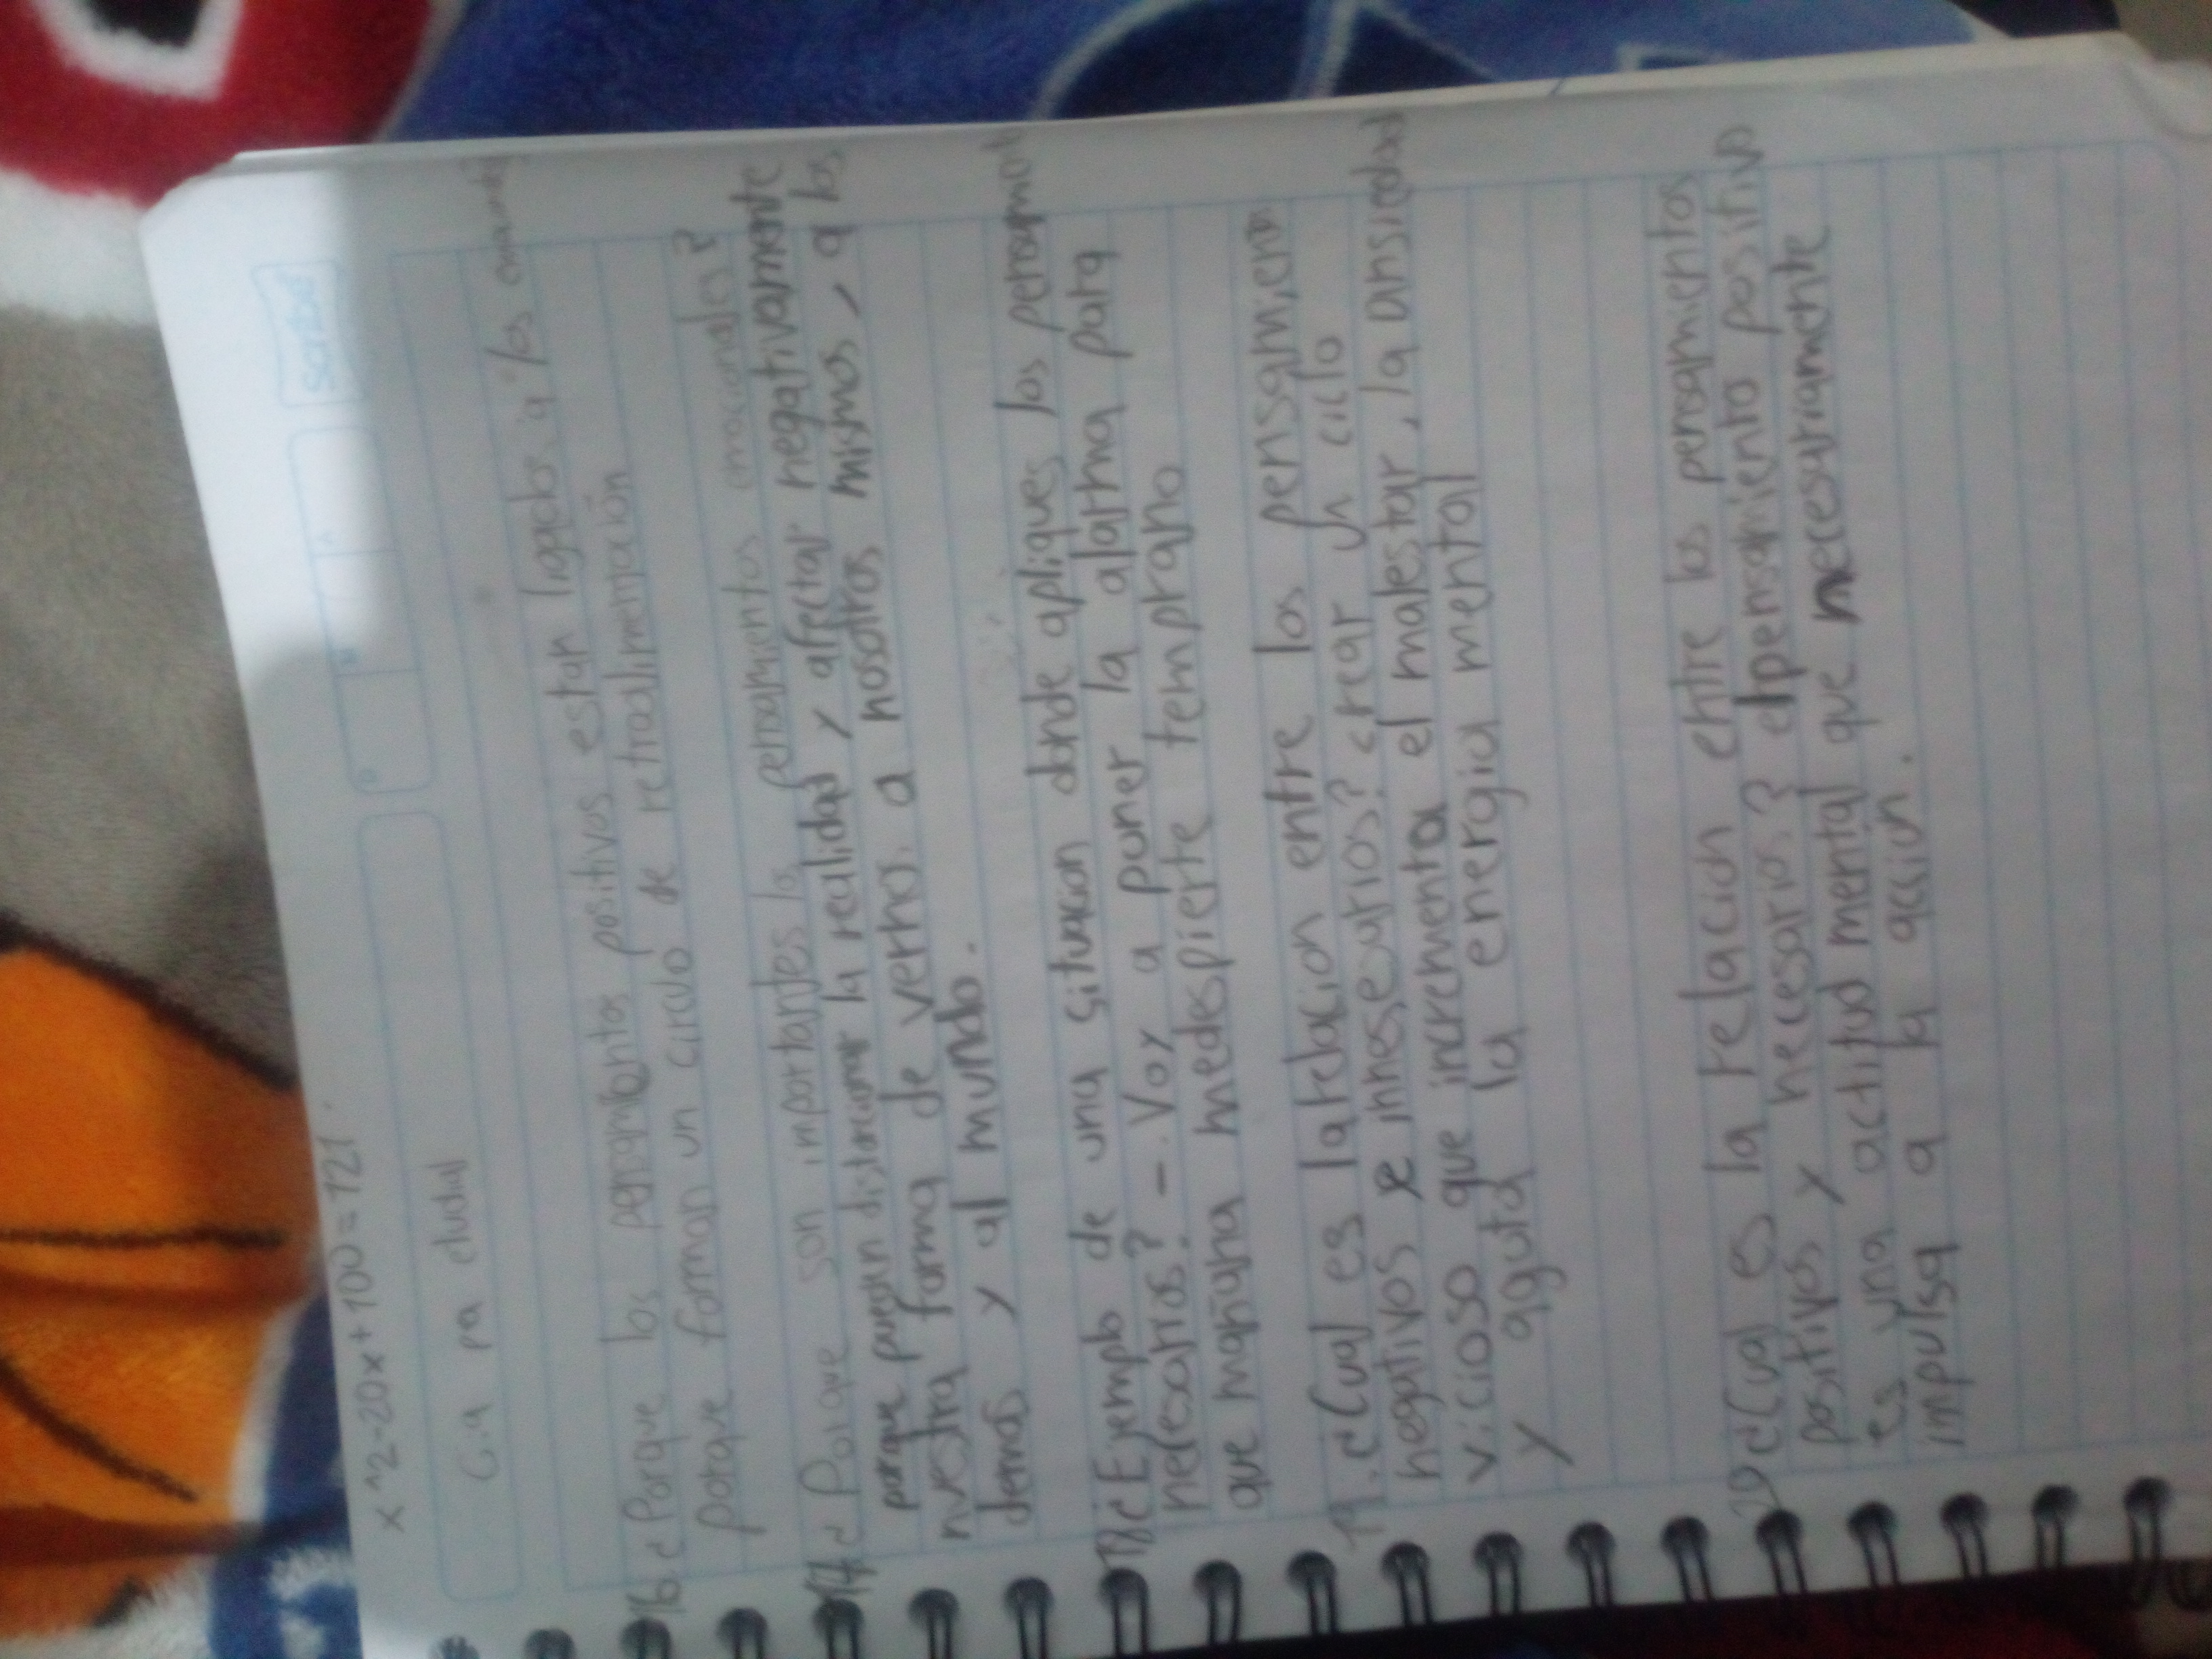 x^2-20x+100=121.
scribe
D M A
16.¿Porque los pensamientos positivos estan ligados a los
porque forman un circulo de retroalimentación
17¿Porque son importantes los pensamientos emocionales?
porque pueden distorcionar la realidad y afectar negativamente
nuestra forma de vernos a nosotros mismos, a los
demas y al mundo.
18¿Ejemplo de una situacion donde apliques los
nesesarios? -. Voy a poner la alarma para
que mañana medespierte temprano
19.¿Cual es la relacion entre los pensamiento
negativos e innesesarios? crear un ciclo
vicioso que incrementa el malestar, la ansiedad
y aguta la energia mental
20¿Cual es la relacion entre los pensamientos
positivos y necesarios? elpensamiento positivo
es una actitud mental que necesariamente
impulsa a la accion.